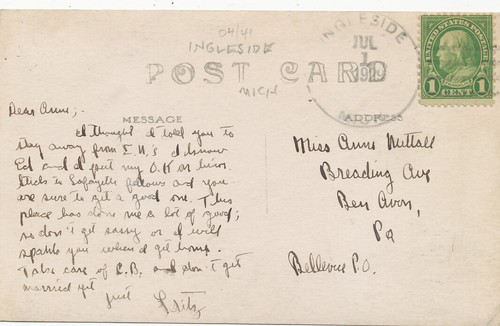 04/41
INGLESIDE
MICH
POST CARD
INGLESIDE
JUL
1
1929
MICH.
UNITED STATES POSTAGE
1 CENT 1
MESSAGE
ADDRESS
Dear Anne;-
I thought I told you to
stay away from I.U.s I know
Ed and I put my O.K on him.
Stick to Lafayette fellows and you
are sure to get a good one. This
place has done me a lot of good;
so don't get sassy or I will
spank you when I get home.
Take care of C.B. and don't get
married yet
just Fritz
Miss Anne Nuttall
Breading Ave
Ben Avon,
Pa
Bellevue P.O.